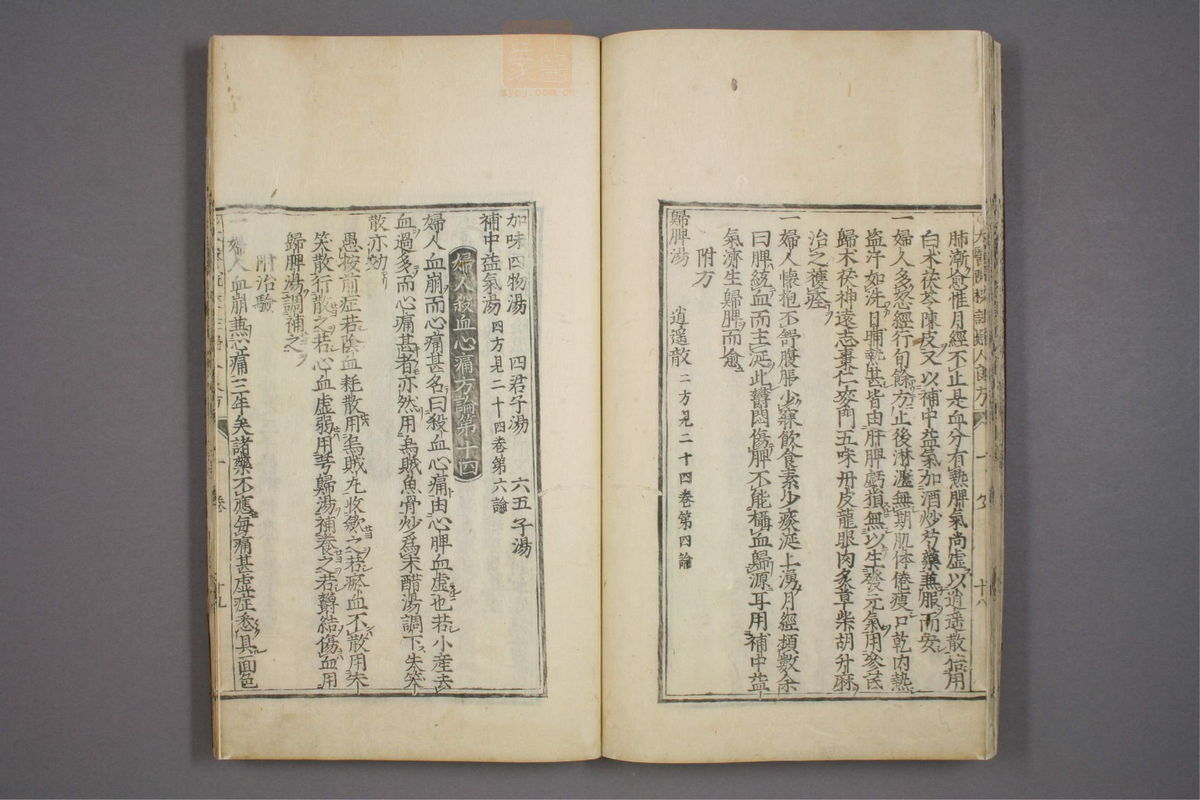 肺漸愈惟月經不止是血分有熱脾氣尚虛以逍遙散倍用
白朮茯苓陳皮又以補中益氣加酒炒芍藥兼服而安
一婦人多怒經行旬餘方止後淋瀝無期肌体倦瘦口乾內熱
盗汗如洗日晡熱甚皆由肝脾虧損無以生發元氣用參芪
歸朮茯神遠志棗仁麥門五味丹皮龍眼肉炙草柴胡升麻
治之獲痊
一婦人懷抱不舒腹脹少寐飲食素少痰涎上湧月經頻數余
曰脾統血而主涎此欝悶傷脾不能攝血歸源耳用補中益
氣濟生歸脾而愈
附方
歸脾湯 逍遥散 二方見二十四卷第四論
加味四物湯 四君子湯 六五子湯
補中益氣湯 四方見二十四卷第六論
婦人殺血心痛方論第十四
婦人血崩而心痛甚名曰殺血心痛由心脾血虛也若小産去
血過多而心痛甚者亦然用烏賊魚骨炒爲末醋湯調下失笑
散亦効
愚按前症若陰血耗散用烏賊丸收斂之若瘀血不散用失
笑散行散之若心血虛弱用芎歸湯補養之若欝結傷血用
歸脾湯調補之
附治驗
一婦人血崩兼心痛三年矣諸藥不應每痛甚虛症悉具面色